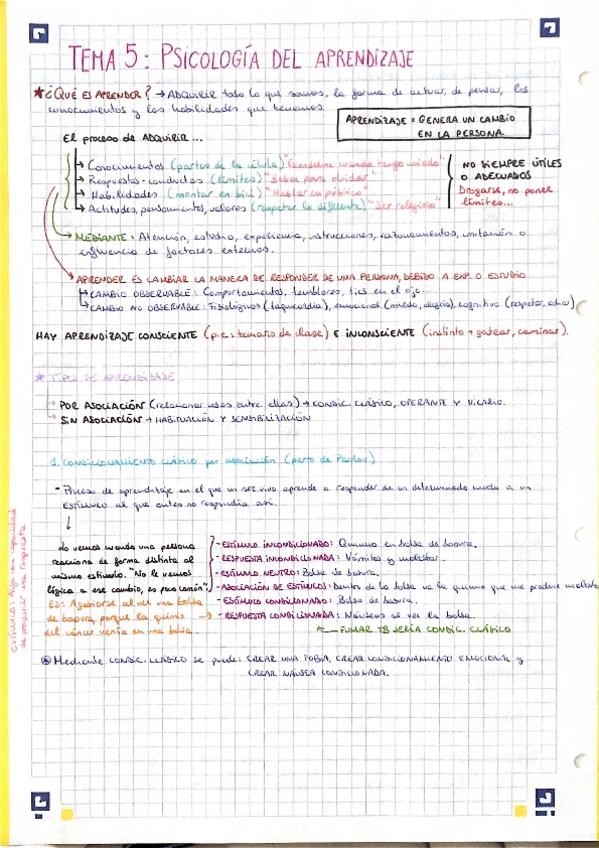 TEMA 5: PSICOLOGÍA DEL APRENDIZAJE
★ ¿QUÉ ES APRENDER? → ADQUIRIR todo lo que somos, la forma de actuar, de pensar, los
conocimientos y las habilidades que tenemos.
APRENDIZAJE = GENERA UN CAMBIO
EN LA PERSONA.
El proceso de ADQUIRIR...
→ Conocimientos (partes de la célula) "Esconderme cuando tengo miedo"
→ Respuestas-conductas (límites) "Beber para olvidar"
→ Habilidades (montar en bici) "Hablar en público"
→ Actitudes, pensamientos, valores (respetar lo diferente) "Ser religioso"
NO SIEMPRE ÚTILES
O ADECUADOS
Drogarse, no poner
límites...
→ MEDIANTE: Atención, estudio, experiencia, instrucciones, razonamientos, imitación o
influencia de factores externos.
APRENDER ES CAMBIAR LA MANERA DE RESPONDER DE UNA PERSONA, DEBIDO A EXP. O ESTUDIO
→ CAMBIO OBSERVABLE: Comportamientos, temblores, tics en el ojo...
→ CAMBIO NO OBSERVABLE: Fisiológicos (taquicardia), emocional (miedo, alegría), cognitivo (respetar, odiar)
HAY APRENDIZAJE CONSCIENTE (p.e: temario de clase) E INCONSCIENTE (instinto → gatear, caminar).
★ TIPOS DE APRENDIZAJE
→ POR ASOCIACIÓN (relacionar cosas entre ellas) → CONDIC. CLÁSICO, OPERANTE Y VICARIO.
→ SIN ASOCIACIÓN → HABITUACIÓN Y SENSIBILIZACIÓN
1. CONDICIONAMIENTO CLÁSICO por asociación (perro de Pavlov)
- Proceso de aprendizaje en el que un ser vivo aprende a responder de un determinado modo a un
ESTÍMULO al que antes no respondía así.
↓
Lo vemos cuando una persona
reacciona de forma distinta al
mismo estímulo. "No le vemos
lógica a ese cambio, es poco común".
EJ: Agobiarse al ver una bolsa
de basura, porque la quimio
del cáncer venía en una bolsa.
- ESTÍMULO INCONDICIONADO: Quimio en bolsa de basura.
- RESPUESTA INCONDICIONADA: Vómitos y malestar.
- ESTÍMULO NEUTRO: Bolsa de basura.
- ASOCIACIÓN DE ESTÍMULOS: Dentro de la bolsa va la quimio que me produce malestar
- ESTÍMULO CONDICIONADO: Bolsa de basura.
- RESPUESTA CONDICIONADA: Náuseas al ver la bolsa.
FUMAR TB SERÍA CONDIC. CLÁSICO
Mediante CONDIC. CLÁSICO se puede: CREAR UNA FOBIA, CREAR CONDICIONAMIENTO EMOCIONAL y
CREAR NÁUSEA CONDICIONADA.
ESTÍMULO: Algo con capacidad
de producir una respuesta